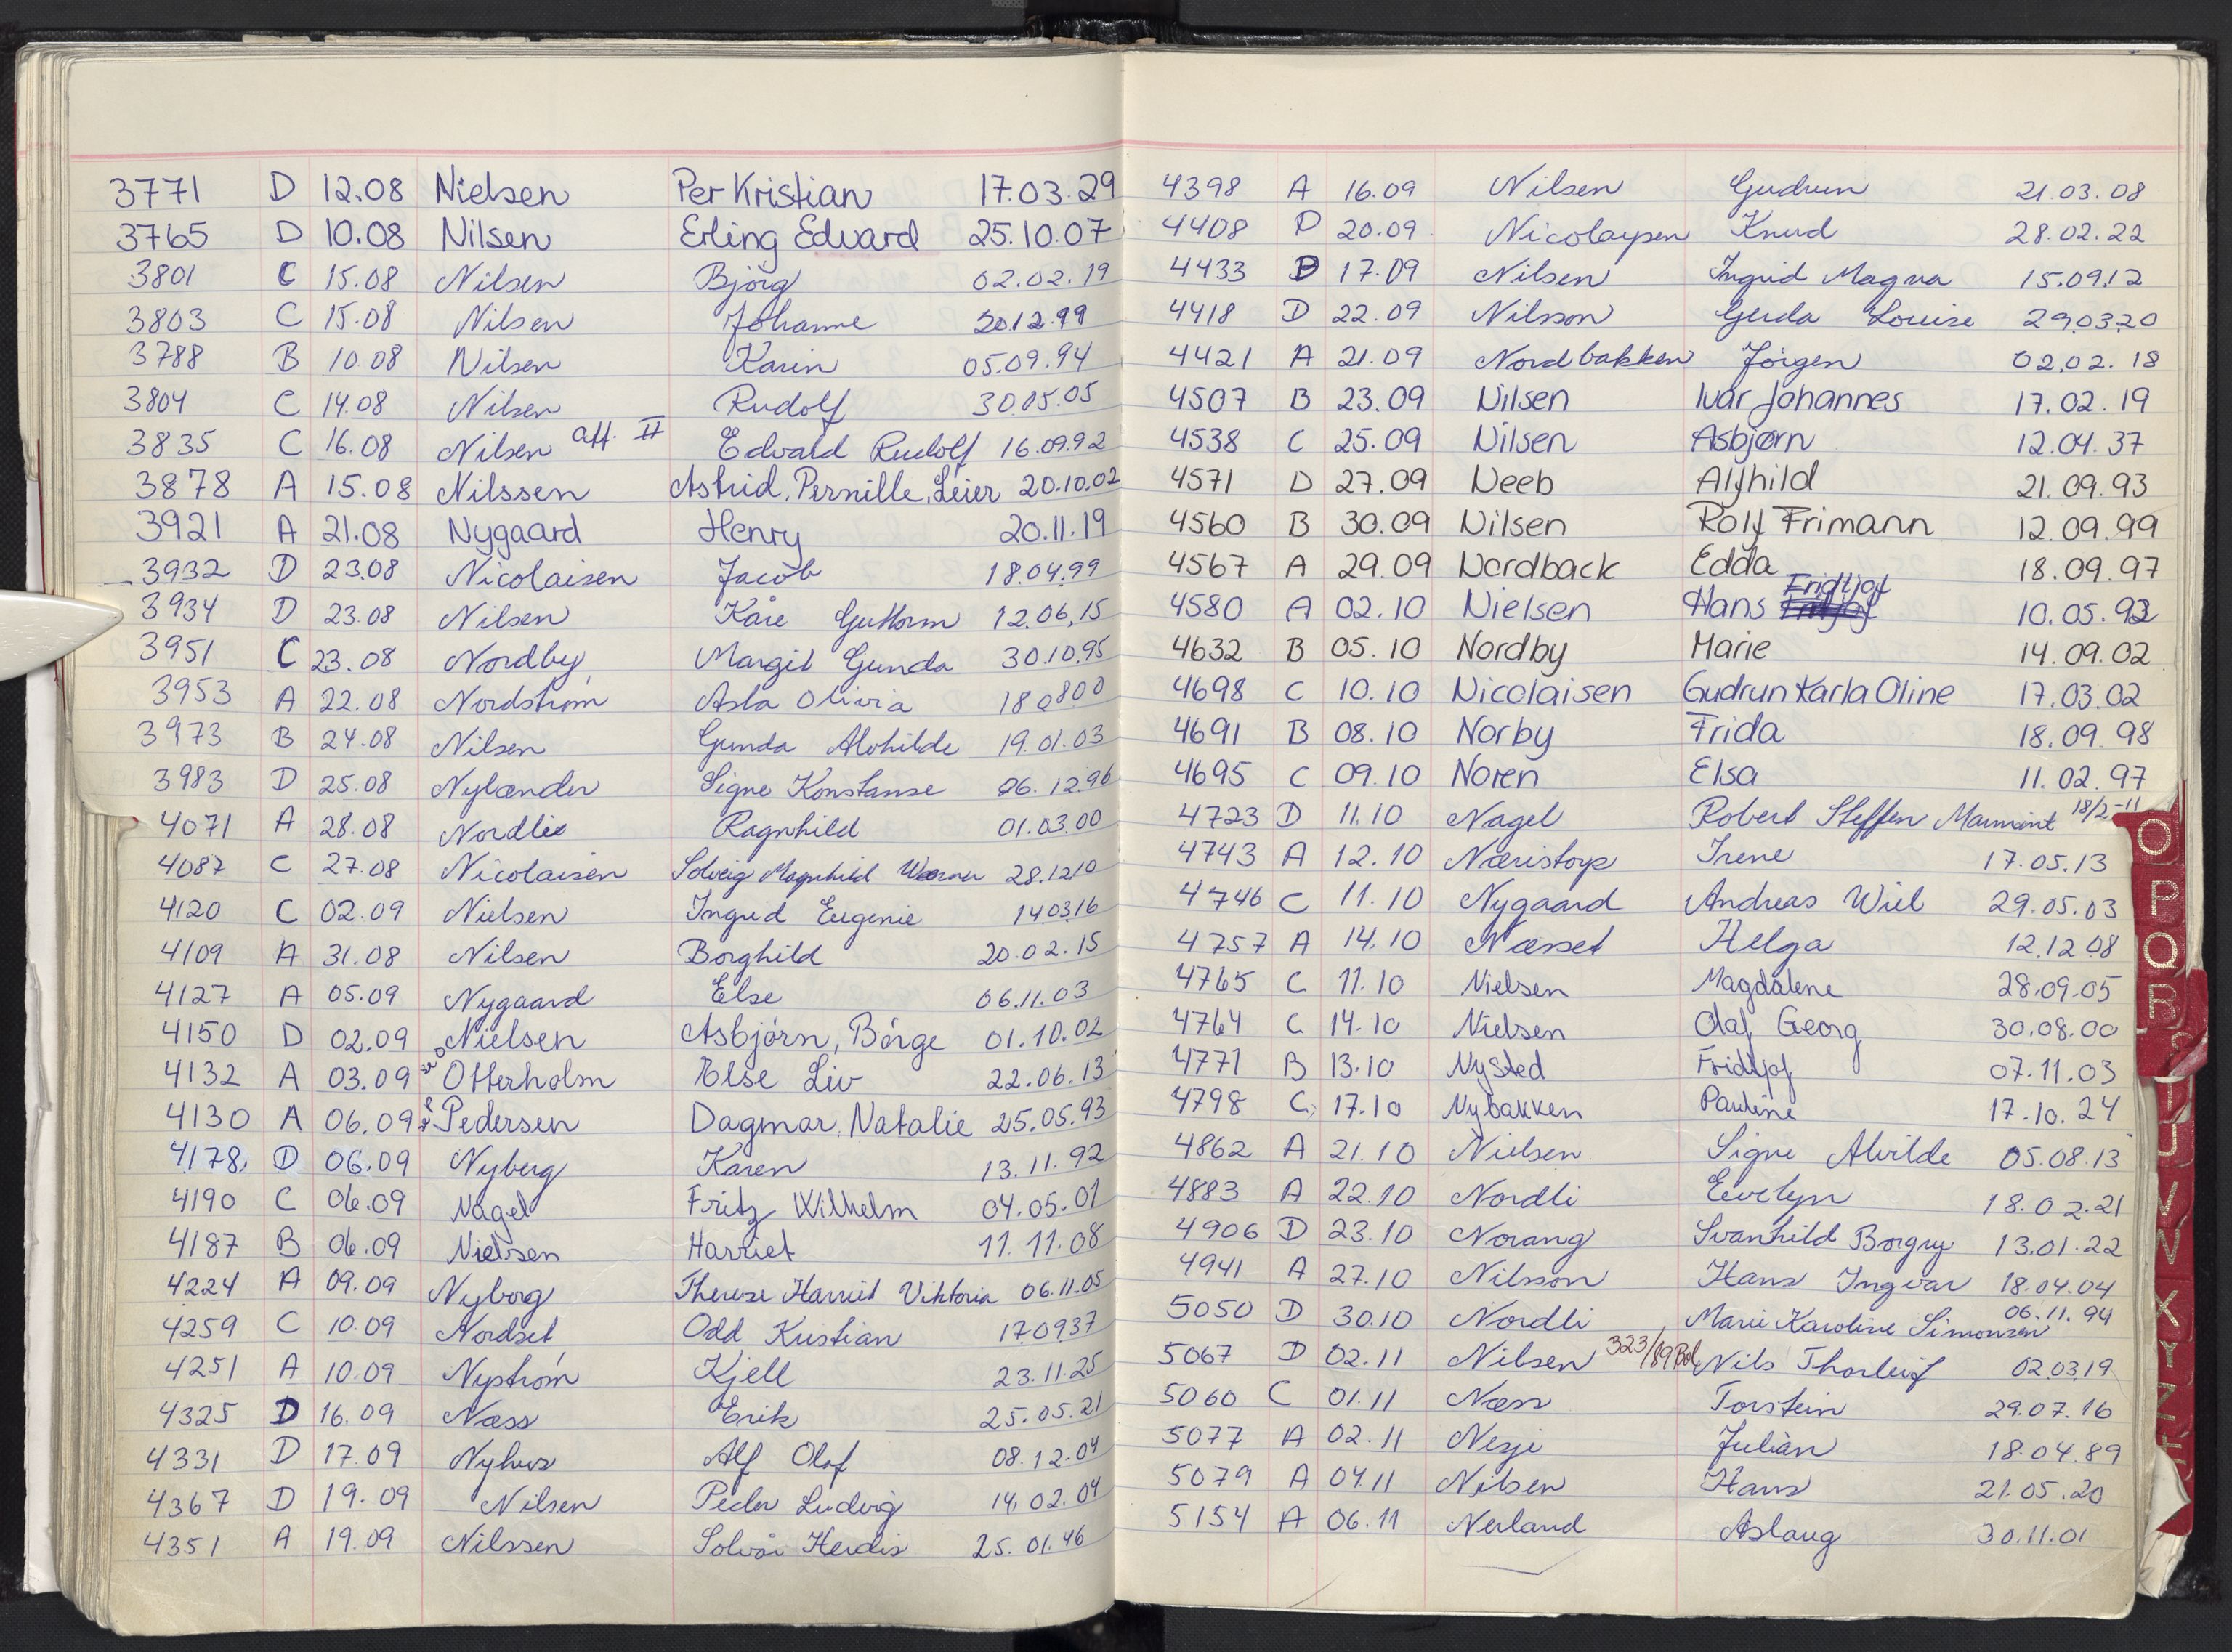 3771 D 12.08 Nielsen Per Kristian 17.03.29
3765 D 10.08 Nilsen Erling Edvard 25.10.07
3801 C 15.08 Nilsen Bjørg 02.02.19
3803 C 15.08 Nilsen Johanne 20.12.99
3788 B 10.08 Nilsen Karin 05.09.94
3804 C 14.08 Nilsen Rudolf 30.05.05
3835 C 16.08 Nilsen Aff. II Edvald Rudolf 16.09.92
3878 A 15.08 Nilssen Astrid, Pernille, Leier 20.10.02
3921 A 21.08 Nygaard Henry 20.11.19
3932 D 23.08 Nicolaisen Jacob 18.04.99
3934 D 23.08 Nilsen Kåre Guttorm 12.06.15
3951 C 23.08 Nordby Margit Gunda 30.10.95
3953 A 22.08 Nordstrøm Asta Olivia 18.08.00
3973 B 24.08 Nilsen Gunda Alvhilde 19.01.03
3983 D 25.08 Nylænder Signe Konstanse 06.12.96
4071 A 28.08 Nordlie Ragnhild 01.03.00
4087 C 27.08 Nicolaisen Solveig Magnhild 28.12.10
4120 C 02.09 Nielsen Ingrid Eugenie 14.03.16
4109 A 31.08 Nilsen Borghild 20.02.15
4127 A 05.09 Nygaard Else 06.11.03
4150 D 02.09 Nielsen Asbjørn, Børge 01.10.02
4132 A 03.09 se O Otterholm Else Liv 22.06.13
4130 A 06.09 se P Pedersen Dagmar, Natalie 25.05.93
4178 D 06.09 Nyberg Karen 13.11.92
4190 C 06.09 Nagel Fritz Wilhelm 04.05.01
4187 B 06.09 Nielsen Harriet 11.11.08
4224 A 09.09 Nyborg Therese Harriet Viktoria 06.11.05
4259 C 10.09 Nordset Odd Kristian 17.09.37
4251 A 10.09 Nystrøm Kjell 23.11.25
4325 D 16.09 Næss Erik 25.05.21
4331 D 17.09 Nyhus Alf Olaf 08.12.04
4367 D 19.09 Nilsen Peder Ludvig 14.02.04
4351 A 19.09 Nilssen Solvår Herdis 25.01.46
4398 A 16.09 Nilsen Gudrun 21.03.08
4408 D 20.09 Nicolaysen Knud 28.02.22
4433 B 17.09 Nilsen Ingrid Magna 15.09.12
4418 D 22.09 Nilsson Gerda Louise 29.03.20
4421 A 21.09 Nordbakken Jørgen 02.02.18
4507 B 23.09 Nilsen Ivar Johannes 17.02.19
4538 C 25.09 Nilsen Asbjørn 12.04.37
4571 D 27.09 Neeb Alfhild 21.09.93
4560 B 30.09 Nilsen Rolf Frimann 12.09.99
4567 A 29.09 Nordback Edda 18.09.97
4580 A 02.10 Nielsen Hans Fridtjof 10.05.92
4632 B 05.10 Nordby Marie 14.09.02
4698 C 10.10 Nicolaisen Gudrun Karla Oline 17.03.02
4691 B 08.10 Norby Frida 18.09.98
4695 C 09.10 Noren Elsa 11.02.97
4723 D 11.10 Nagel Robert Steffen 18/2-11
4743 A 12.10 Næristorp Irene 17.05.13
4746 C 11.10 Nygaard Andreas Wiel 29.05.03
4757 A 14.10 Næsset Helga 12.12.08
4765 C 11.10 Nielsen Magdalene 28.09.05
4764 C 14.10 Nielsen Olaf Georg 30.08.00
4771 B 13.10 Nysted Fridtjof 07.11.03
4798 C 17.10 Nybakken Pauline 17.10.24
4862 A 21.10 Nielsen Signe Alvilde 05.08.13
4883 A 22.10 Nordli Eevelyn 18.02.21
4906 D 23.10 Norang Svanhild Borgny 13.01.22
4941 A 27.10 Nilsson Hans Ingvar 18.04.04
5050 D 30.10 Nordli Marie Karoline Simonsen 06.11.94
5067 D 02.11 Nilsen 323/89 Bol Nils Thorleif 02.03.19
5060 C 01.11 Næss Torstein 29.07.16
5077 A 02.11 Nesje Julian 18.04.89
5079 A 04.11 Nilsen Hans 21.05.20
5154 A 06.11 Nerland Aslaug 30.11.01
O
P
Q
R
U
V
X
Y
Z